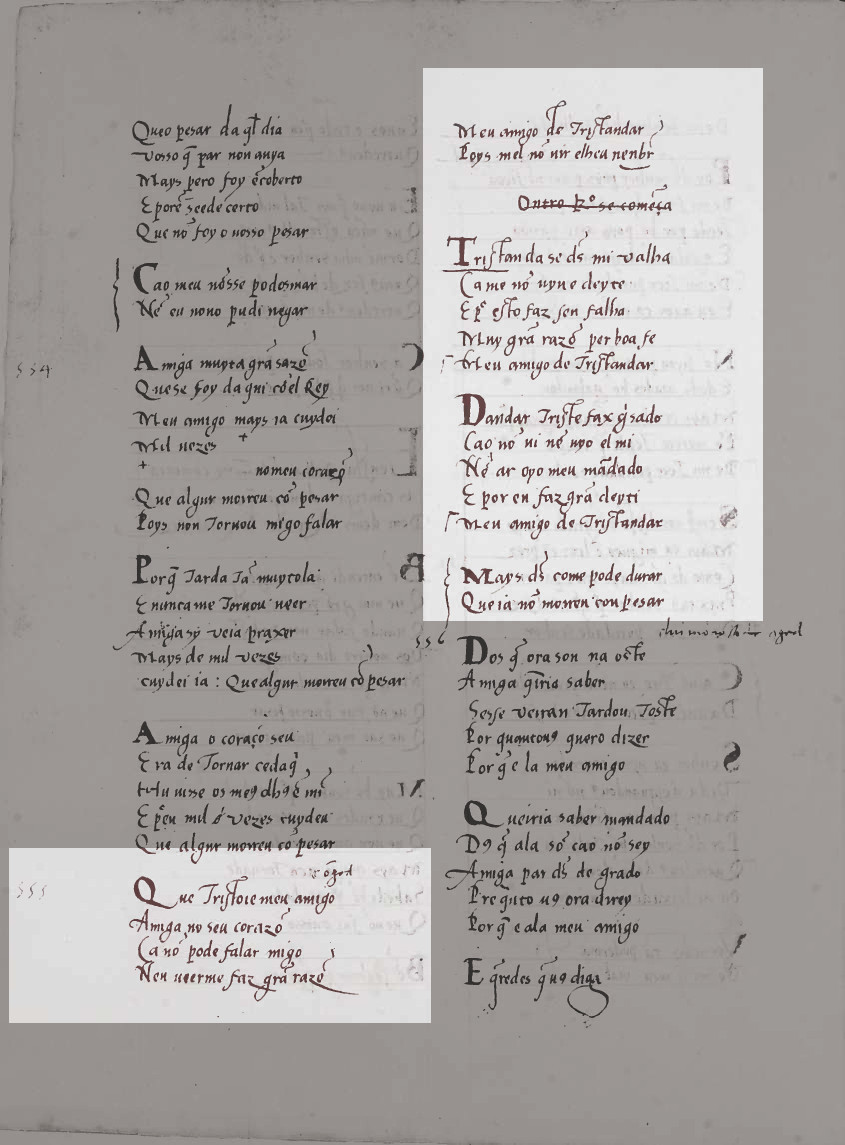 Queo pesar da ql dia
vosso q̃ par non auya
Mays pero foy ẽcoberto
E poren seede certo
Que nõ foy o uosso pesar
Cao meu nõsse podosmar
Nẽ eu nono pudi negar
554
Amiga muyta grã sazõ
Quese foy da qui cõel Rey
Meu amigo mays ia cuydei
Mil uezes +
+ nomeu corazõ
Que algur moireu cõ pesar
Poys non Tornou migo falar
Porq̃ Tarda Tã muytola
E nuncame Tornou ueer
Amiga sy veia praxer
Mays de mil vezes
cuydei ia : Que algur morreu cõ pesar
Amiga o coraçõ seu
Era de Tornar cedaq̃
uisse os me9
E mil vezes cuydeu
Que algur morreu cõ pesar
555
Que Tristoie meu amigo
Amiga no seu corazõ
Ca nõ pode falar migo
Nen ueerme faz grã razõ
Meu amigo de Tristandar
Poys mel nõ uir elheu nenbr̃
Outro Rº se começa
Tristan da se ds̃ mi valha
Ca me nõ uyu e deyte
E pr̃ esto faz sen falha
Muy grã razõ per boa fe
Meu amigo de Tristandar
Dandar Triste fax g̃sado
Cao nõ ui nẽ uyo el mi
Nẽ ar oyo meu mãdado
E por en faz grã deyti
Meu amigo de Tristandar
Mays ds̃ come pode durar
Que ia nõ morreu con pesar
556
Dos q̃ ora son na oste
Amiga q̃iria saber
Sesse veiran Tardou Toste
Por quantou9 quero dizer
Por q̃ e la meu amigo
Queiria saber mandado
D9 q̃ ala sõ cao nõ sey
Amiga par ds̃ de grado
Pre q̃nto u9 ora direy
Por q̃ e ala meu amigo
E q̃redes q̃ u9 diga